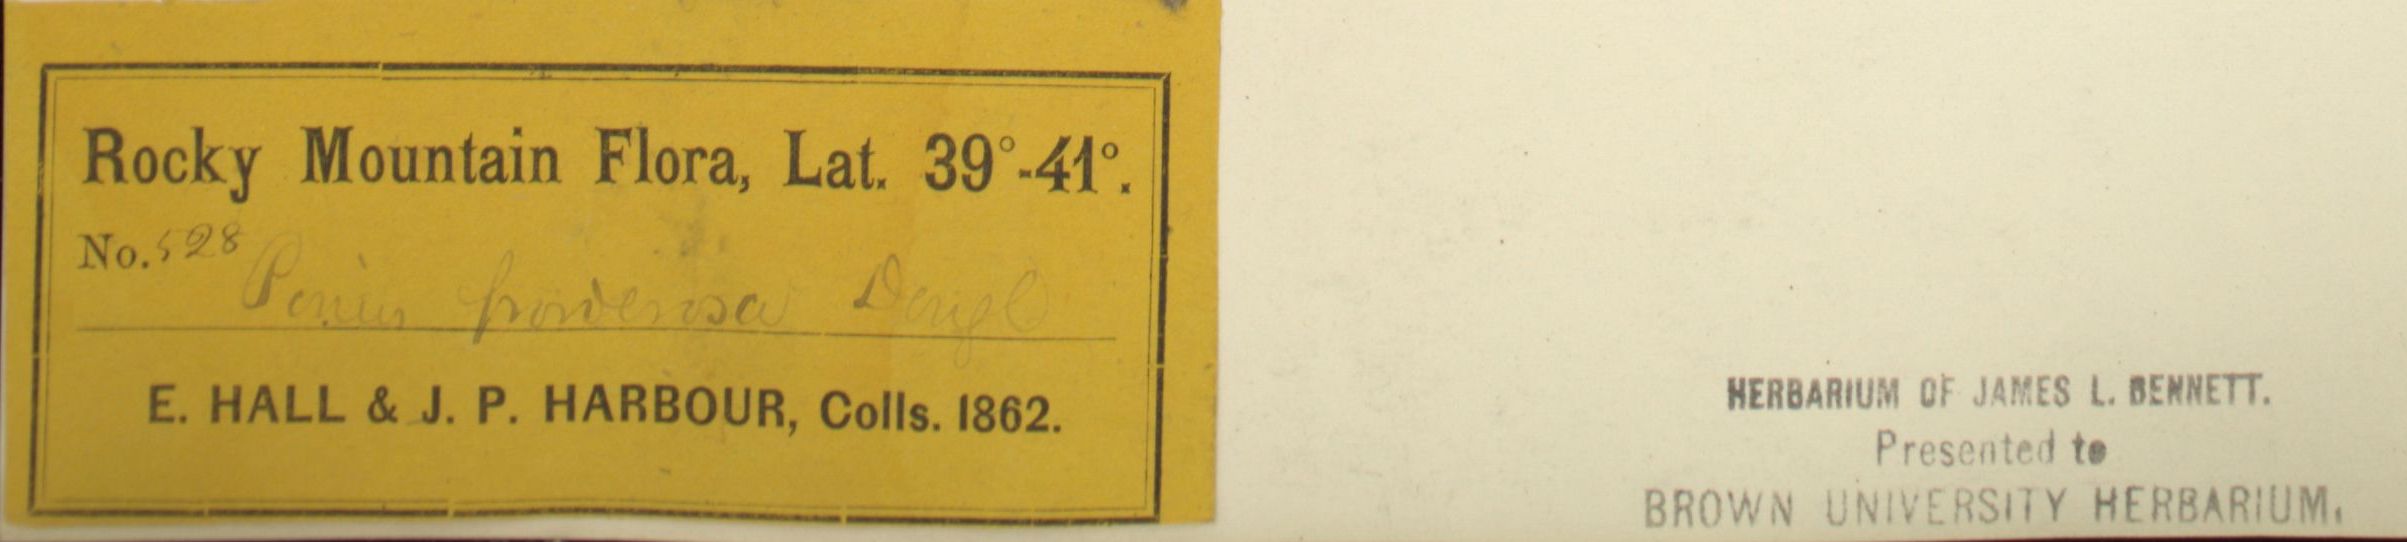 Rocky Mountain Flora, Lat. 39°-41°.
No. 528
Pinus ponderosa Dougl
E. HALL & J. P. HARBOUR, Colls. 1862.
HERBARIUM OF JAMES L. BENNETT.
Presented to
BROWN UNIVERSITY HERBARIUM.